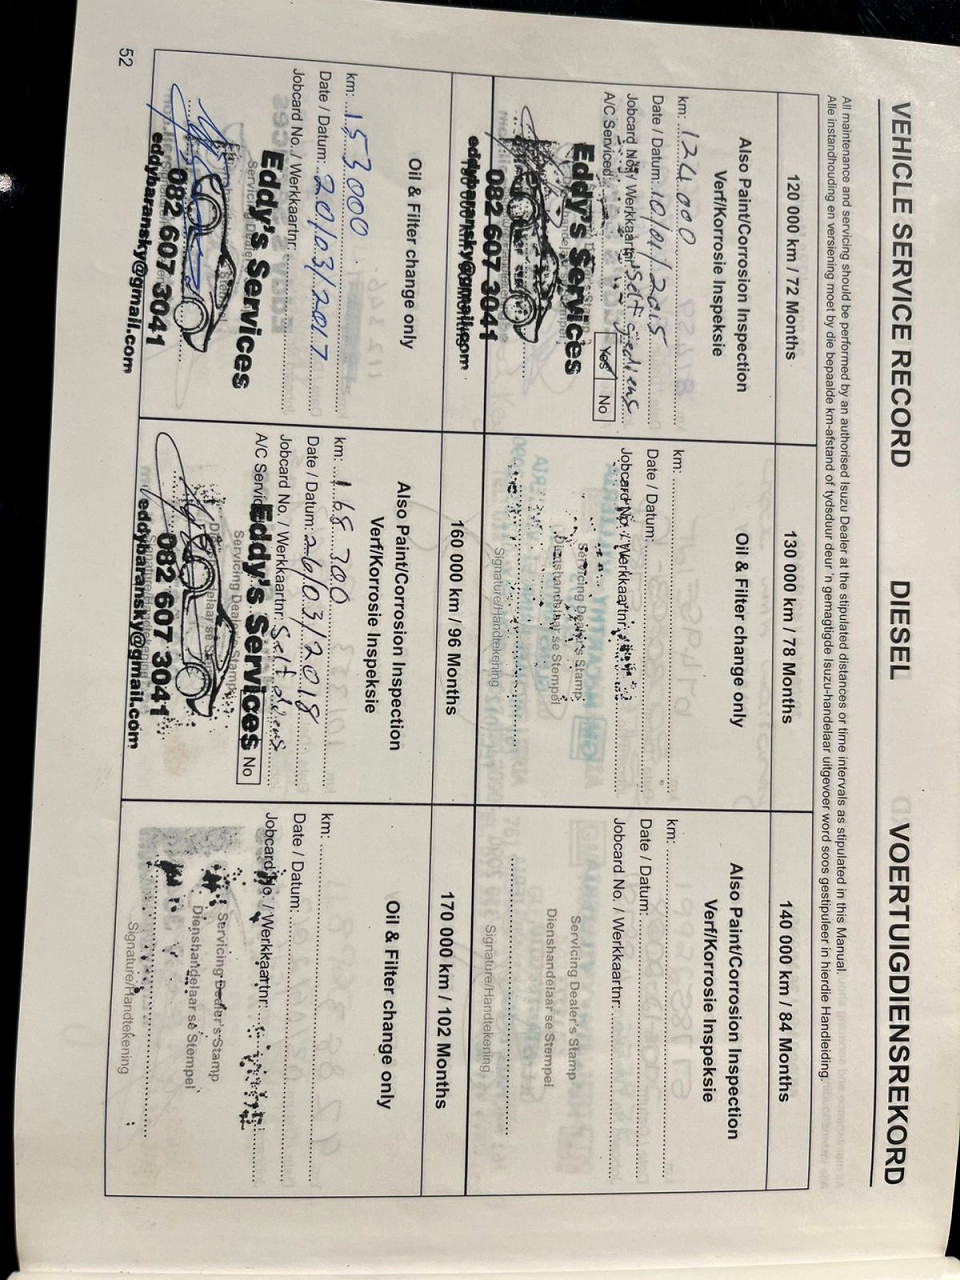 VEHICLE SERVICE RECORD DIESEL VOERTUIGDIENSREKORD
All maintenance and servicing should be performed by an authorised Isuzu Dealer at the stipulated distances or time intervals as stipulated in this Manual.
Alle instandhouding en versiening moet by die bepaalde km-afstand of tydsduur deur 'n gemagtigde Isuzu-handelaar uitgevoer word soos gestipuleer in hierdie Handleiding.
120 000 km / 72 Months
Also Paint/Corrosion Inspection
Verf/Korrosie Inspeksie
km: 124000
Date / Datum: 10/01/2015
Jobcard No. / Werkkaartnr: Self gediens
A/C Serviced Yes No
Eddy's Services
082 607 3041
eddybaransky@gmail.com
130 000 km / 78 Months
Oil & Filter change only
km:
Date / Datum:
Jobcard No. / Werkkaartnr:
Servicing Dealer's Stamp
Dienshandelaar se Stempel
Signature/Handtekening
140 000 km / 84 Months
Also Paint/Corrosion Inspection
Verf/Korrosie Inspeksie
km:
Date / Datum:
Jobcard No. / Werkkaartnr:
Servicing Dealer's Stamp
Dienshandelaar se Stempel
Signature/Handtekening
Oil & Filter change only
km: 153000
Date / Datum: 20/03/2017
Jobcard No. / Werkkaartnr:
Eddy's Services
082 607 3041
eddybaransky@gmail.com
160 000 km / 96 Months
Also Paint/Corrosion Inspection
Verf/Korrosie Inspeksie
km: 168300
Date / Datum: 26/03/2018
Jobcard No. / Werkkaartnr: Self gediens
A/C Serviced No
Eddy's Services
082 607 3041
eddybaransky@gmail.com
170 000 km / 102 Months
Oil & Filter change only
km:
Date / Datum:
Jobcard No. / Werkkaartnr:
Servicing Dealer's Stamp
Dienshandelaar se Stempel
Signature/Handtekening
52